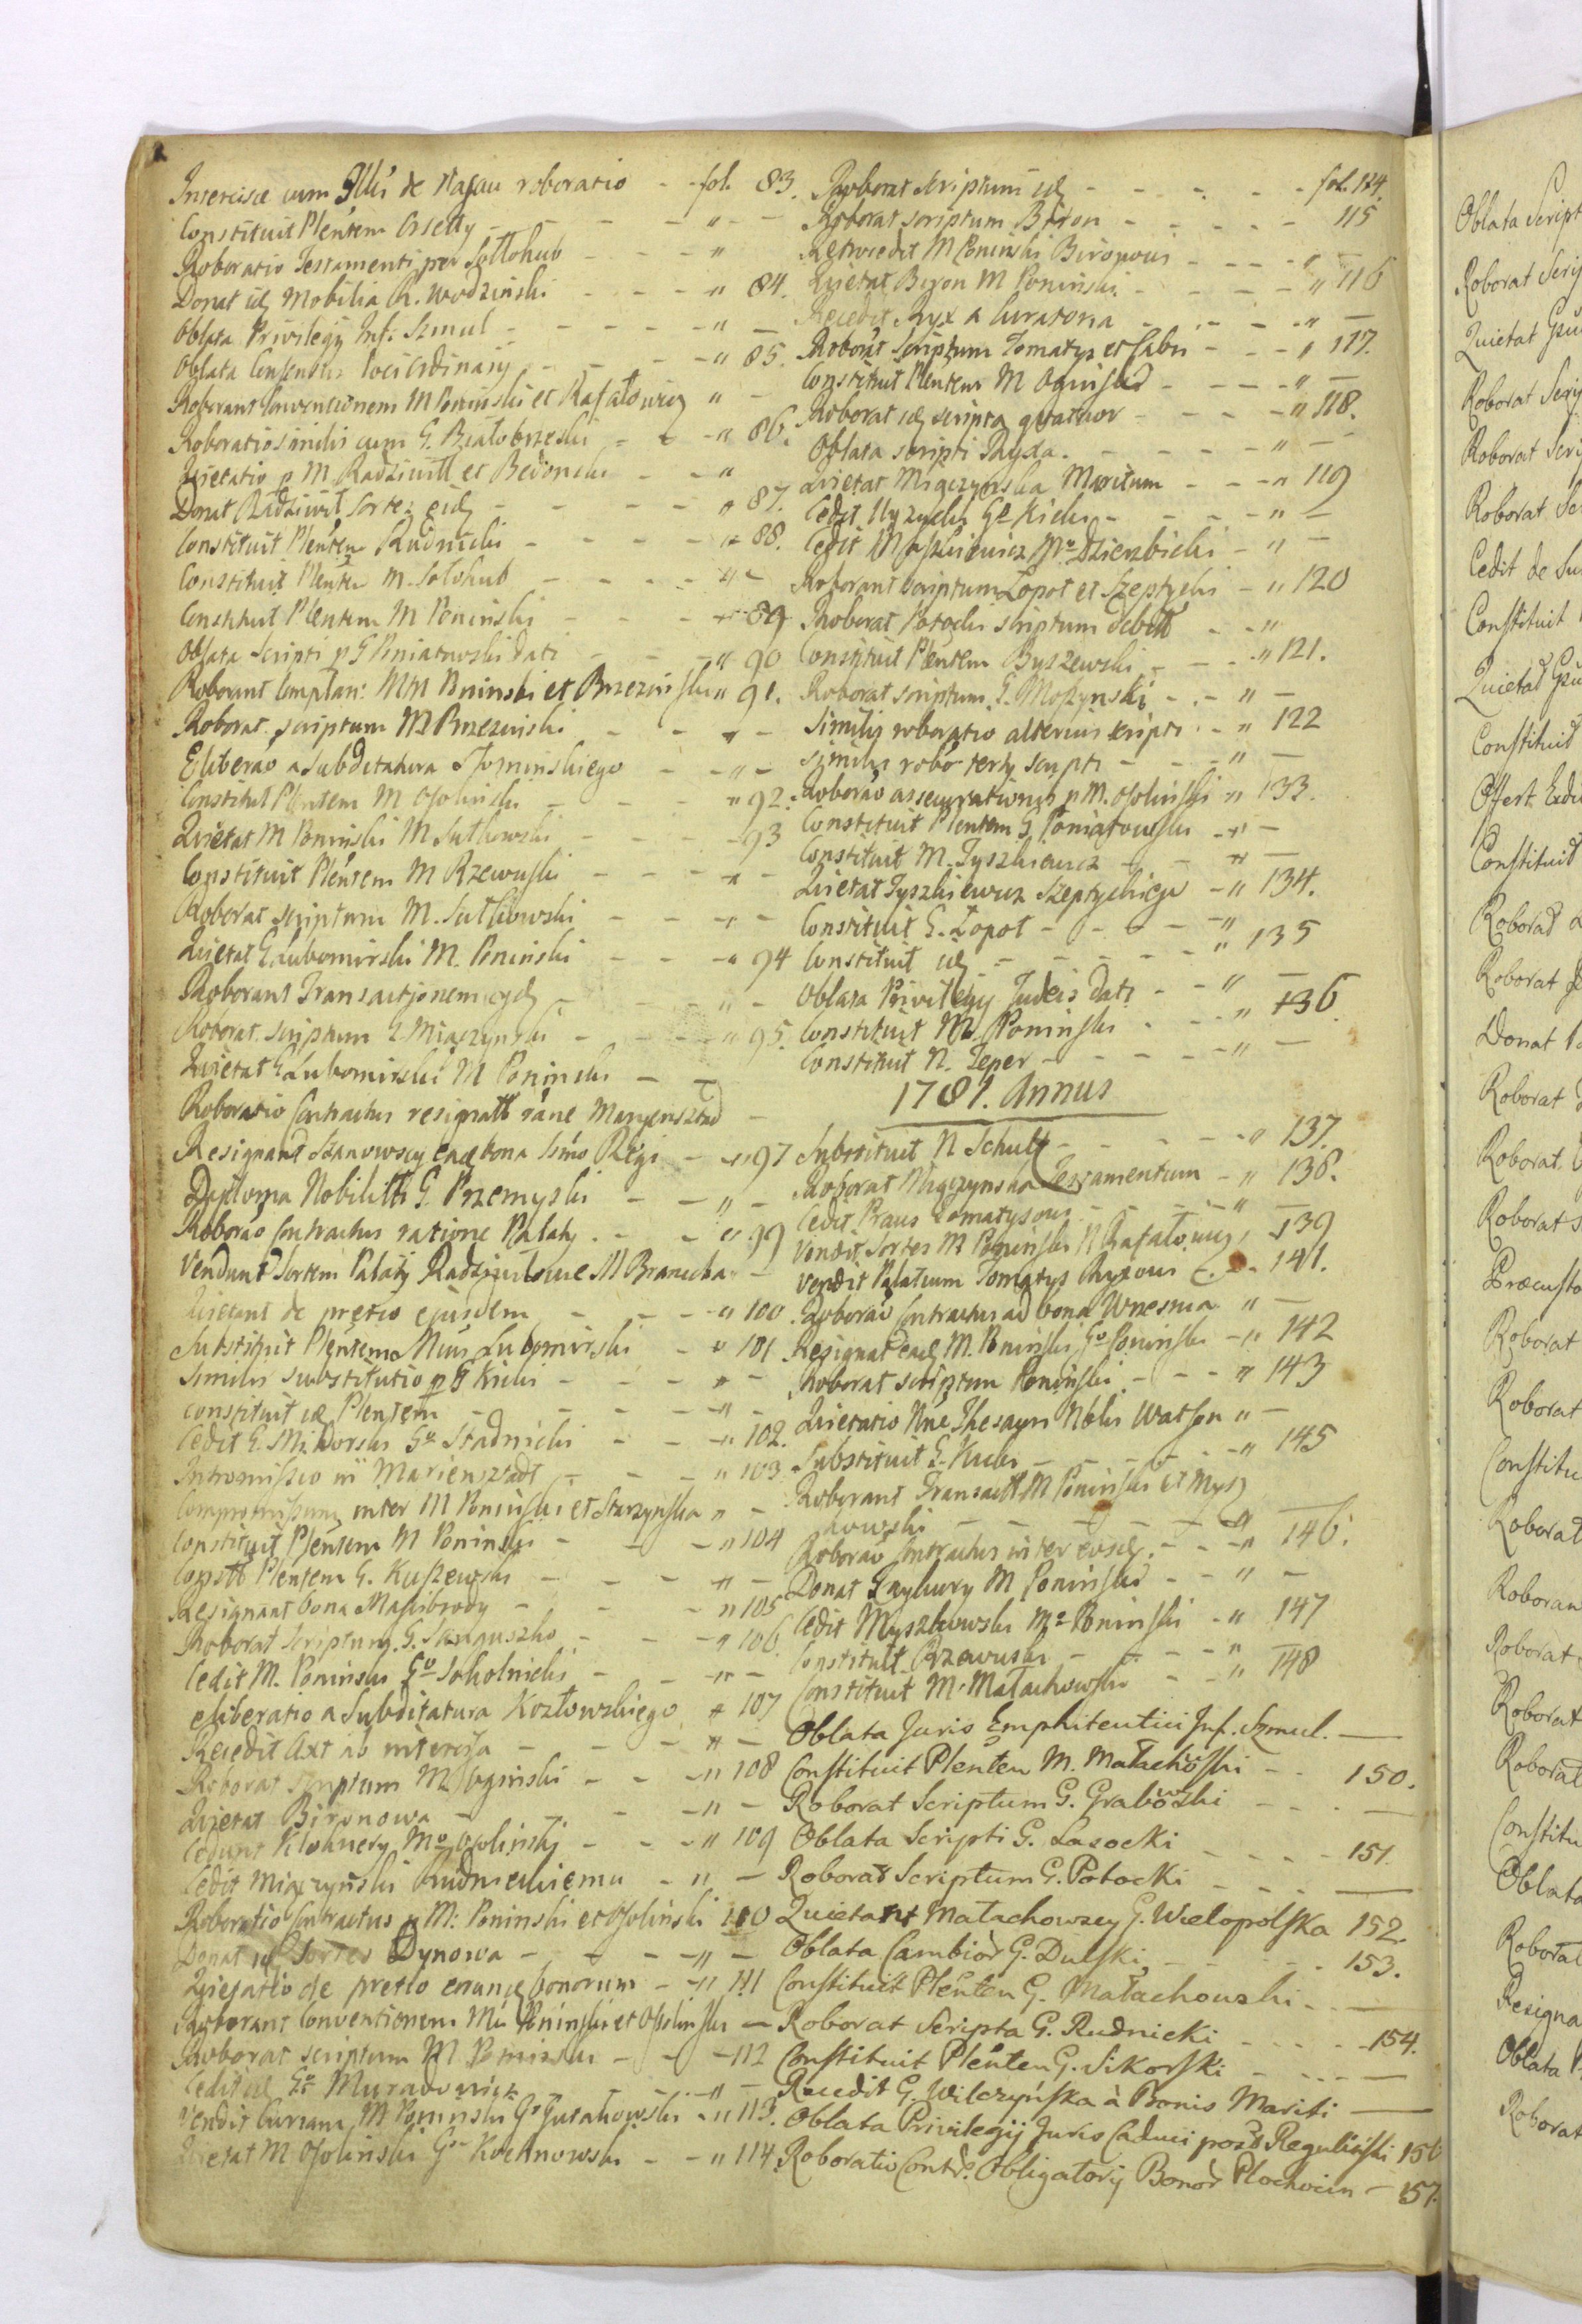 Intercisae cum Illis de Nassau roboratio - - fol. 83.
Constituit Plentem Orsetty - - - - " -
Roboratio Testamenti per Sołłohub - - - "
Donat id Mobilia R. Wodzinski - - - " 84.
Oblata Privilegij Inf: Szmul - - - - " -
Oblata Consensus Loci Ordinarij - - - " 85.
Roborant Conventionem M Poninski et Rafałowicz " -
Roboratio similis cum G. Białobrzeski - - " 86.
Quietatio p M Radziwiłł et Bedonski - - "
Donat Radziwił Sortes eid - - - - " 87.
Constituit Plentem Rudnicki - - - - " 88.
Constituit Plentem M. Sołohub - - - - " -
Constituit Plentem M Poninski - - - 89
Oblata Scripti p G Poniatowski dati - - - " 90
Roborant Complan: MM Poninski et Brzezinski " 91.
Roborat scriptum M Brzezinski - - " -
Eliberao a Subditatura Słominskiego - - " -
Constituit Plentem M Ossolinski - - - " 92.
Quietat M Poninski M Sułkowski - - - 93
Constituit Plentem M Rzewuski - - - " -
Roborat scriptum M. Sułkowski - - - " -
Quietat G Lubomirski M. Poninski - - - " 94
Roborant Transactionem eid - - - " -
Roborat scriptum G Miączynski - - - " 95.
Quietat G Lubomirski M Poninski - -
Roboratio Contractus resignatt Maryensztad -
Resignant Szanowscy bona Smo Regi - " 97
Diploma Nobilitts G. Przemyski - - " -
Roborao Contractus ratione Palaty - - " 99
Vendunt Sortem Palaty Radziwiłowe M Branicka -
Quietant de pretio ejusdem - - - " 100.
Substituit Plentem Lubomirski - " 101
Similis substitutio p G Kicki - - - " -
Constituit id Plentem - - - " -
Cedit G. Go Stadnicki - - " 102.
Intromissio in Marienstadt - - - " 103
Compromissum inter M Poninski et Starzynska " -
Constituit Plentem M Poninski - - " 104
Constt Plentem G. Kuszewski - - - " -
Resignant bona - - - " 105
Roborat Scriptum G. Sanguszko - - - " 106
Cedit M. Poninski Go Sokolnicki - - " -
eliberatio a Subditatura Kozłowskiego " 107
Recedit Axt ab intercisa - - - " -
Roborat scriptum M Oginski - - - " 108
Quietat Bironowa - - - " -
Cedunt Mo Ossolinski - - - " 109
Cedit Miączyński Rudnickiemu - " -
Roboratio Contractus p M: Poninski et Ossolinski 110
Donat id Sortes Dynowa - - - " -
Quietatio de pretio bonorum - " 111
Roborant Conventionem Poninski et Ossolinski -
Roborat scriptum M Poninski - - - 112
Cedit id Go Muradowicz - - - " -
Vendit Curiam M Poninski Go Gutakowski - " 113.
Quietat M Ossolinski Gm Kochnowski - - " 114.
Roborat Scriptum id - - - - - fol. 114.
Roborat scriptum Biron - - - - 115
M Poninski Bironowi - - - " -
Quietat Biron M Poninski - - - - " 116
Recedit Ryx a Curatoria - - - - " -
Roborat scriptum Tomatys et - - " 117.
Constituit Plentem M Oginski - - - " -
Roborat id scripta quatuor - - - - " 118.
Oblata scripti Ryxa. - - - - " -
Quietat Miączynska Maritum - - - " 119
Cedit Go Kicki - - - - " -
Cedit Mo Dzierzbicki - " -
Roborant scriptum Łopot et Szeptycki - " 120
Roborat Potocki scriptum debitt - - "
Constituit Plentem Byszewski - - - " 121.
Roborat scriptum G. Moszynski - - " -
Similis roboratio alterius scripti - - " 122
Similis robo tertij scripti - - - " -
Roborao assecurationis p M. Ossolinski - " 133.
Constituit Plentem G. Poniatowski - " -
Constituit M. Tyszkiewicz - - " -
Quietat Tyszkiewicz Szeptyckiego - " 134.
Constituit G. Łopot - - - - "
Constituit id - - - - - " 135
Oblata Privilegij Judeis dati - - " -
Constituit M. Poninski - - - " 136.
Constituit N. Teper - - - - - " -
1781. Annus
Substituit N Schultz - - - - - " 137.
Roborat Miączynska Testamentum - " 138.
Cedit Tomatysowi - - - " -
Vendit Sortes M Poninski N Rafałowicz " 139
Vendit Palatium Tomatys Ryxowi - " 141.
Roborao Contractus ad bona Wrzesnia " -
Resignat ead M. Poninski Go Poninski - " 142
Roborat scriptum Poninski - - - " 143
Quietatio Thesauri Nblis Watson " -
Substituit G. Kicki - - - - " 145
Roborant Transactt M Poninski et Mysz
kowski - - - - - " -
Roborao Contractus inter eosd. - - " 146.
Donat M Poninski - - " -
Cedit Myszkowski Mo Poninski - " 147
Constituit Rzewuski - - - "
Constituit M. Małachowski - - " 148
Oblata Juris Emphiteutici Inf. Szmul. —
Constituit Plenten M. Małachoski - - 150.
Roborat Scriptum G. Grabowski - - - —
Oblata Scripti G. Lasocki - - - - 151.
Roborat Scriptum G. Potocki - - - —
Quietant Małachowscy G. Wielopolska 152.
Oblata Cambior G. Dulski, - - - - 153.
Constituit Plenten G. Małachowski - - —
Roborat Scripta G. Rudnicki - - - - 154.
Constituit Plenten G. Sikorski - - - —
Recedit G. Wilczyńska à Bonis Mariti —
Oblata Privilegij Juris Caduci post Regulinski 156
Roboratio Contr. Obligatorij Bonor Płochocin - 157.
Oblata Script
Roborat Scrip
Quietat
Roborat Scrip
Roborat Scrip
Roborat Sc
Cedit de Su
Constituit
Quietat
Constituit
Offert
Constituit
Roborat
Roborat
Donat
Roborat
Roborat
Roborat
Præcusto
Roborat
Roborat
Constitu
Roborat
Roboran
Roborat
Roborat
Roborat
Constitu
Oblata
Roborat
Resigna
Oblata
Roborat